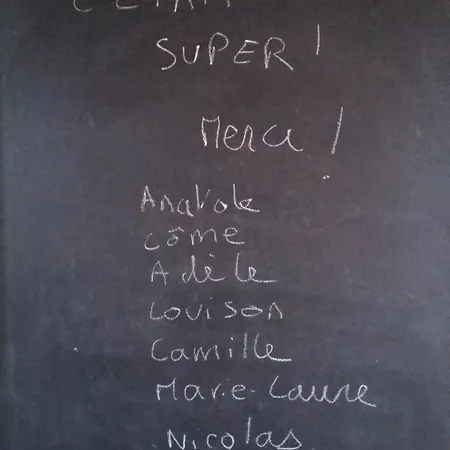 C'ÉTAIT
SUPER!
Merci!
Anatole
Côme
Adèle
Louison
Camille
Marie-Laure
Nicolas